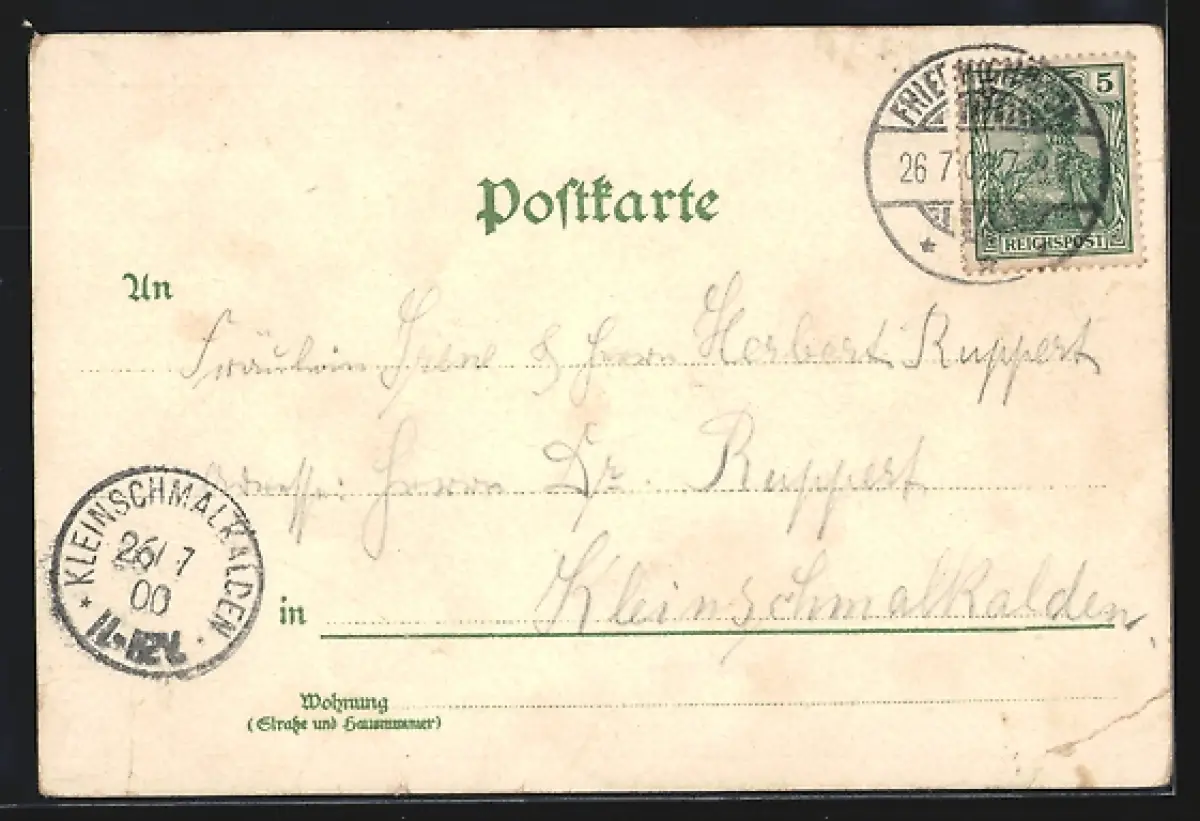 5
26 7 00
REICHSPOST
Postkarte
An
Fräulein Irene & Herrn Herbert Ruppert
Adresse: Herrn Dr. Ruppert
in Kleinschmalkalden
Wohnung
(Straße und Hausnummer)
* KLEINSCHMALKALDEN *
26/7
00